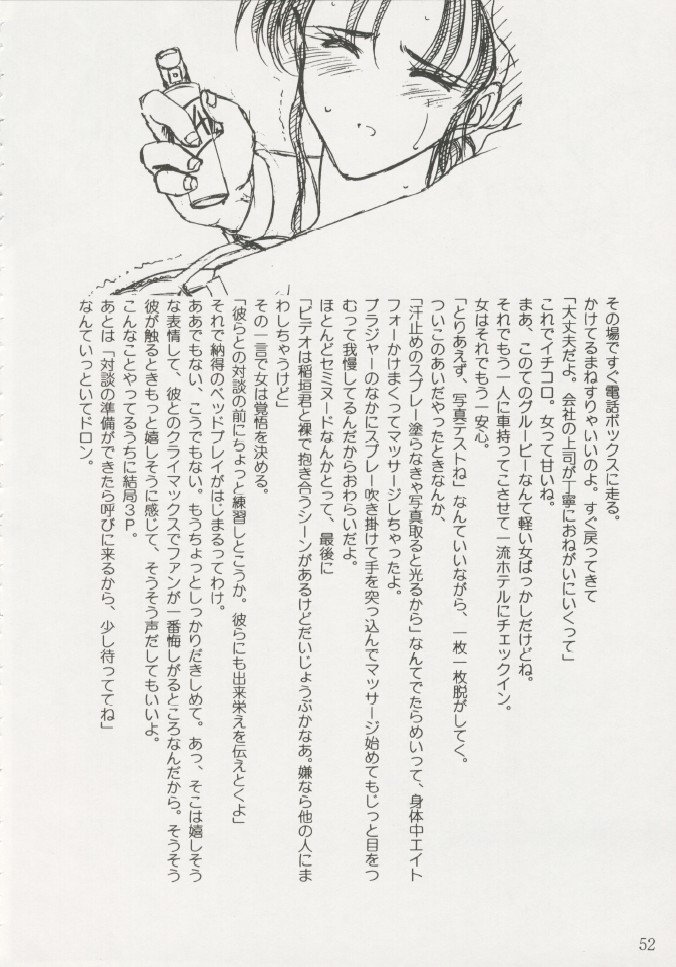 その場ですぐ電話ボックスに走る。
かけてるまねすりゃいいのよ。すぐ戻ってきて
「大丈夫だよ。会社の上司が丁寧におねがいにいくって」
これでイチコロ。女って甘いね。
まあ、このてのグルーピーなんて軽い女ばっかしだけどね。
それでもう一人に車持ってこさせて一流ホテルにチェックイン。
女はそれでもう一安心。
「とりあえず、写真テストね」なんていいながら、一枚一枚脱がしてく。
ついこのあいだやったときなんか、
「汗止めのスプレー塗らなきゃ写真取ると光るから」なんてでたらめいって、身体中エイト
フォーかけまくってマッサージしちゃったよ。
ブラジャーのなかにスプレー吹き掛けて手を突っ込んでマッサージ始めてもじっと目をつ
むって我慢してるんだからおわらいだよ。
ほとんどセミヌードなんかとって、最後に
「ビデオは稲垣君と裸で抱き合うシーンがあるけどだいじょうぶかなあ。嫌なら他の人にま
わしちゃうけど」
その一言で女は覚悟を決める。
「彼らとの対談の前にちょっと練習しとこうか。彼らにも出来栄えを伝えとくよ」
それで納得のベッドプレイがはじまるってわけ。
ああでもない、こうでもない。もうちょっとしっかりだきしめて。あっ、そこは嬉しそう
な表情して、彼とのクライマックスでファンが一番悔しがるところなんだから。そうそう
彼が触るときもっと嬉しそうに感じて、そうそう声だしてもいいよ。
こんなことやってるうちに結局３Ｐ。
あとは「対談の準備ができたら呼びに来るから、少し待っててね」
なんていっといてドロン。
52